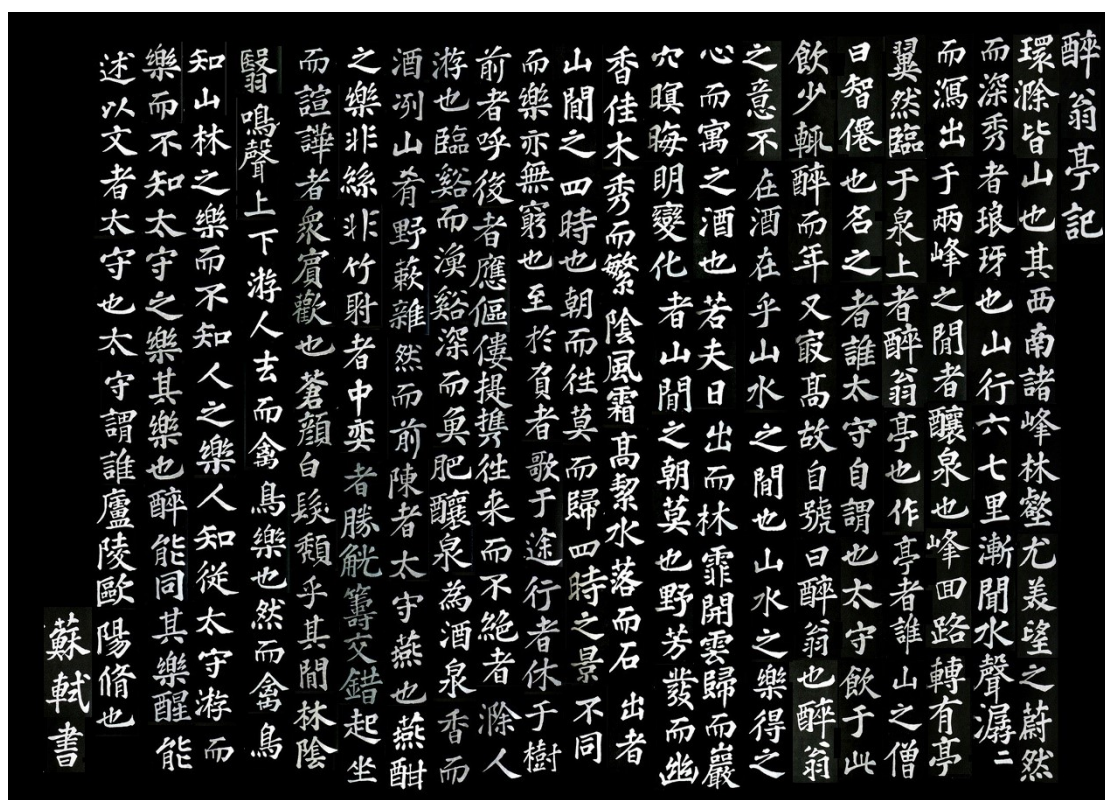 醉翁亭記
環滁皆山也其西南諸峰林壑尤美望之蔚然
而深秀者琅玡也山行六七里漸聞水聲潺二
而瀉出于兩峰之間者釀泉也峰回路轉有亭
翼然臨于泉上者醉翁亭也作亭者誰山之僧
曰智僊也名之者誰太守自謂也太守飲于此
飲少輒醉而年又寂高故自號曰醉翁也醉翁
之意不在酒在乎山水之間也山水之樂得之
心而寓之酒也若夫日出而林霏開雲歸而巖
穴暝晦明變化者山間之朝莫也野芳發而幽
香佳木秀而繁陰風霜高絜水落而石出者
山間之四時也朝而往莫而歸四時之景不同
而樂亦無窮也至於負者歌于途行者休于樹
前者呼後者應傴僂提攜往來而不絕者滁人
游也臨谿而漁谿深而魚肥釀泉為酒泉香而
酒冽山肴野蔌雜然而前陳者太守燕也燕酣
之樂非絲非竹射者中奕者勝觥籌交錯起坐
而諠譁者衆賓歡也蒼顏白髮頹乎其間林陰
翳鳴聲上下游人去而禽鳥樂也然而禽鳥
知山林之樂而不知人之樂人知從太守游而
樂而不知太守之樂其樂也醉能同其樂醒能
述以文者太守也太守謂誰廬陵歐陽脩也
蘇軾書